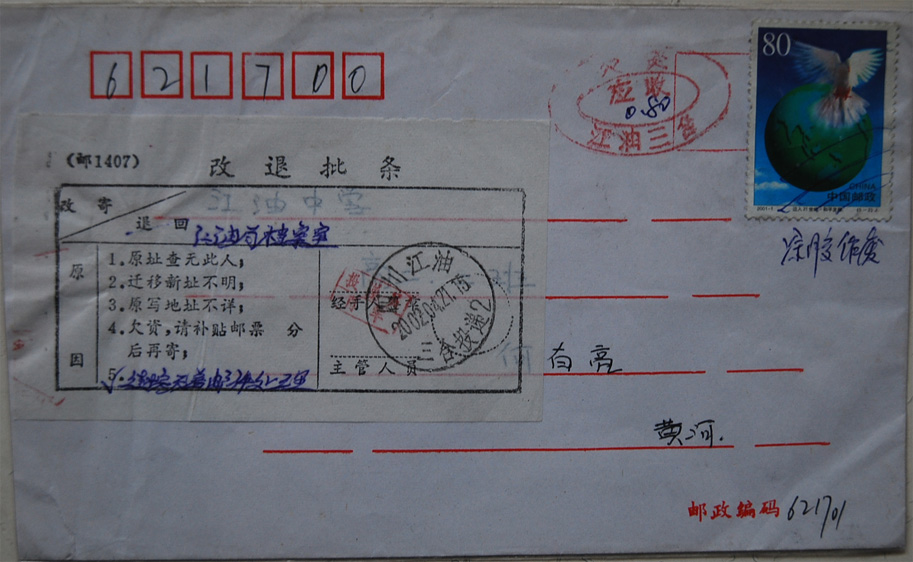 621700
80
欠资
应收
0.80
江油三合
CHINA
中国邮政
涂胶作废
(邮1407)
改退批条
改寄
退回
江油中
江油市档案室
原因
1.原址查无此人;
2.迁移新址不明;
3.原写地址不详;
4.欠资,请补贴邮票 分
后再寄;
5.
经手人
主管人员
四川江油
2002.04.21.15
三合投递2
何白亮
黄河.
邮政编码 621701